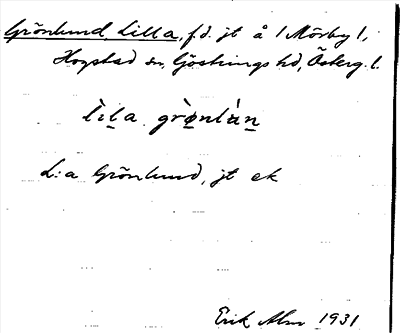 Grönlund, Lilla, f.d. jt å 1 Mörby 1,
Hogstad sn, Göstrings hd, Österg. l.
lìl̠a grø̀nlán̠
L:a Grönlund, jt ek
Erik Alm 1931